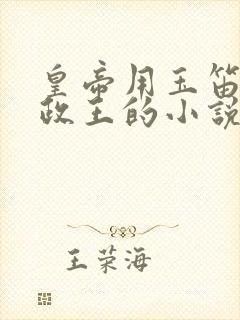 皇帝用玉笛
政王的小说
王荣海